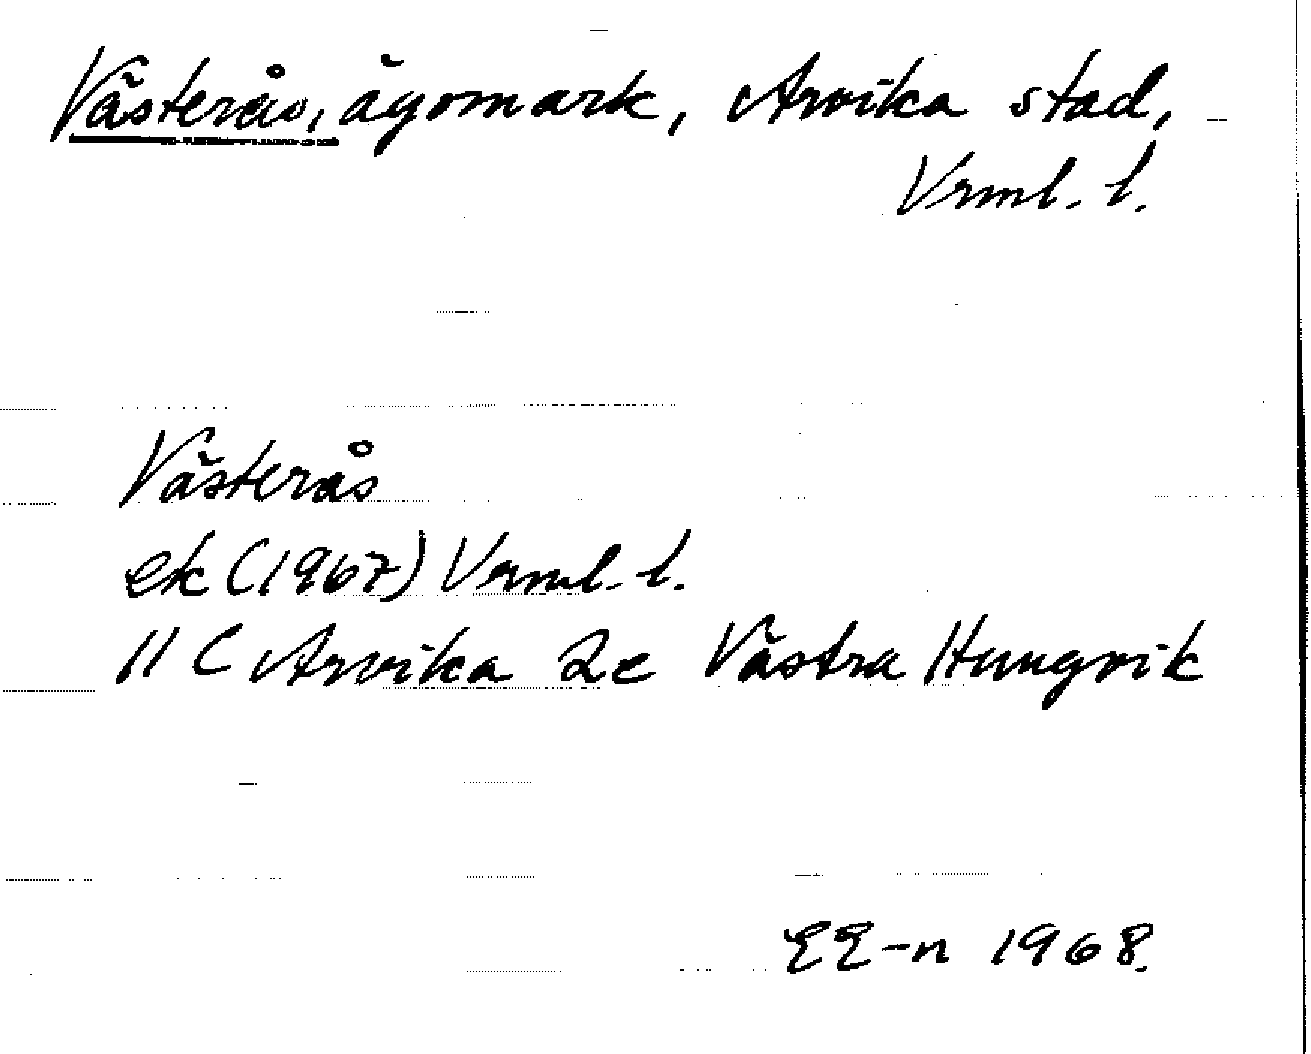 Västerås, ägomark, Arvika stad,
Vrml. l.
Västerås
ek (1967) Vrml. l.
11 C Arvika 2e Västra Hungvik
EE-n 1968.